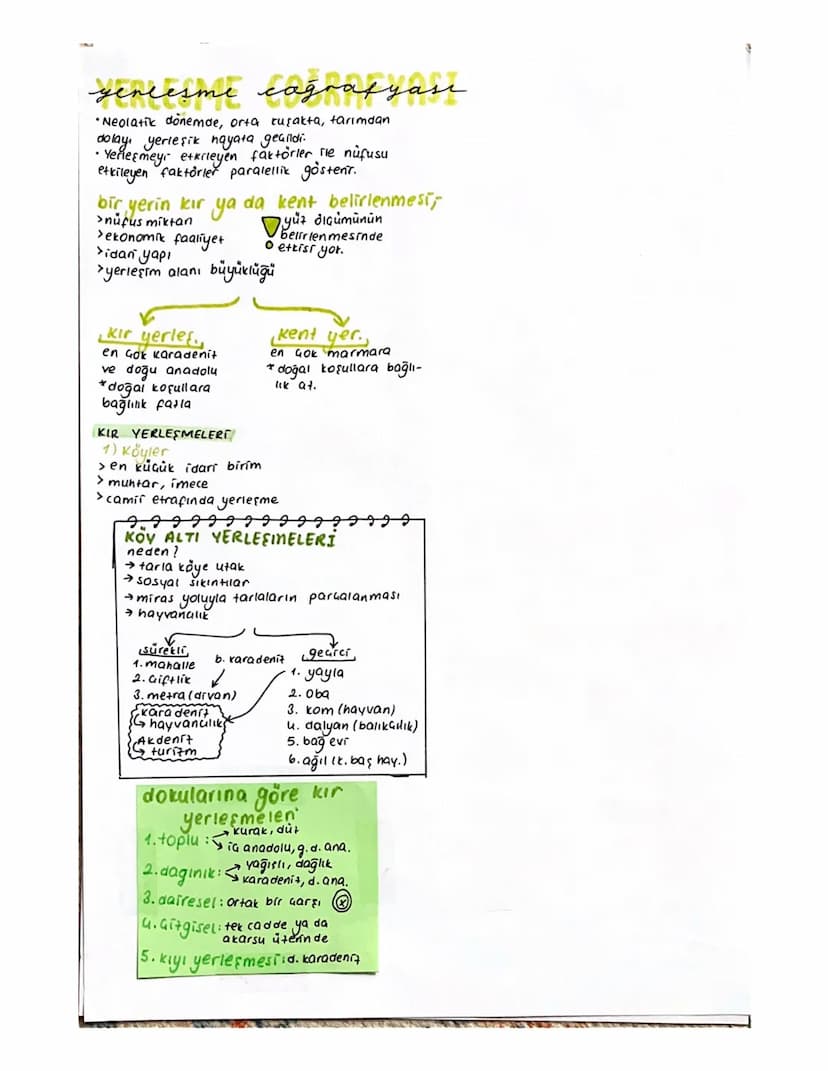 YERLEŞME COĞRAFYASI
yerleşme coğrafyası
• Neolatik dönemde, orta kuşakta, tarımdan
dolayı yerleşik hayata geçildi.
• Yerleşmeyi etkileyen faktörler ile nüfusu
etkileyen faktörler paralellik gösterir.
bir yerin kır ya da kent belirlenmesi;-
>nüfus miktarı
>ekonomik faaliyet
>idari yapı
>yerleşim alanı büyüklüğü
! yüz ölçümünün
belirlenmesinde
etkisi yok.
kır yerleş.
en çok karadeniz
ve doğu anadolu
*doğal koşullara
bağlılık fazla
kent yer.
en çok marmara
*doğal koşullara bağlı-
lık az.
KIR YERLEŞMELERİ
1) Köyler
> en küçük idari birim
> muhtar, imece
> camii etrafında yerleşme
KÖY ALTI YERLEŞMELERİ
neden?
→ tarla köye uzak
→ sosyal sıkıntılar
→ miras yoluyla tarlaların parçalanması
→ hayvancılık
sürekli
1. mahalle
2. çiftlik
3. mezra (divan)
b. karadeniz
karadeniz
↳ hayvancılık
Akdeniz
↳ turizm
geçici
1. yayla
2. oba
3. kom (hayvan)
4. dalyan (balıkçılık)
5. bağ evi
6. ağıl (k. baş hay.)
dokularına göre kır
yerleşmeleri
1. toplu : → kurak, düz
→ iç anadolu, g.d. ana.
2. dağınık: → yağışlı, dağlık
→ karadeniz, d. ana.
3. dairesel: ortak bir çarşı
4. çizgisel: tek cadde ya da
akarsu üzerinde
5. kıyı yerleşmesi: d. karadeniz